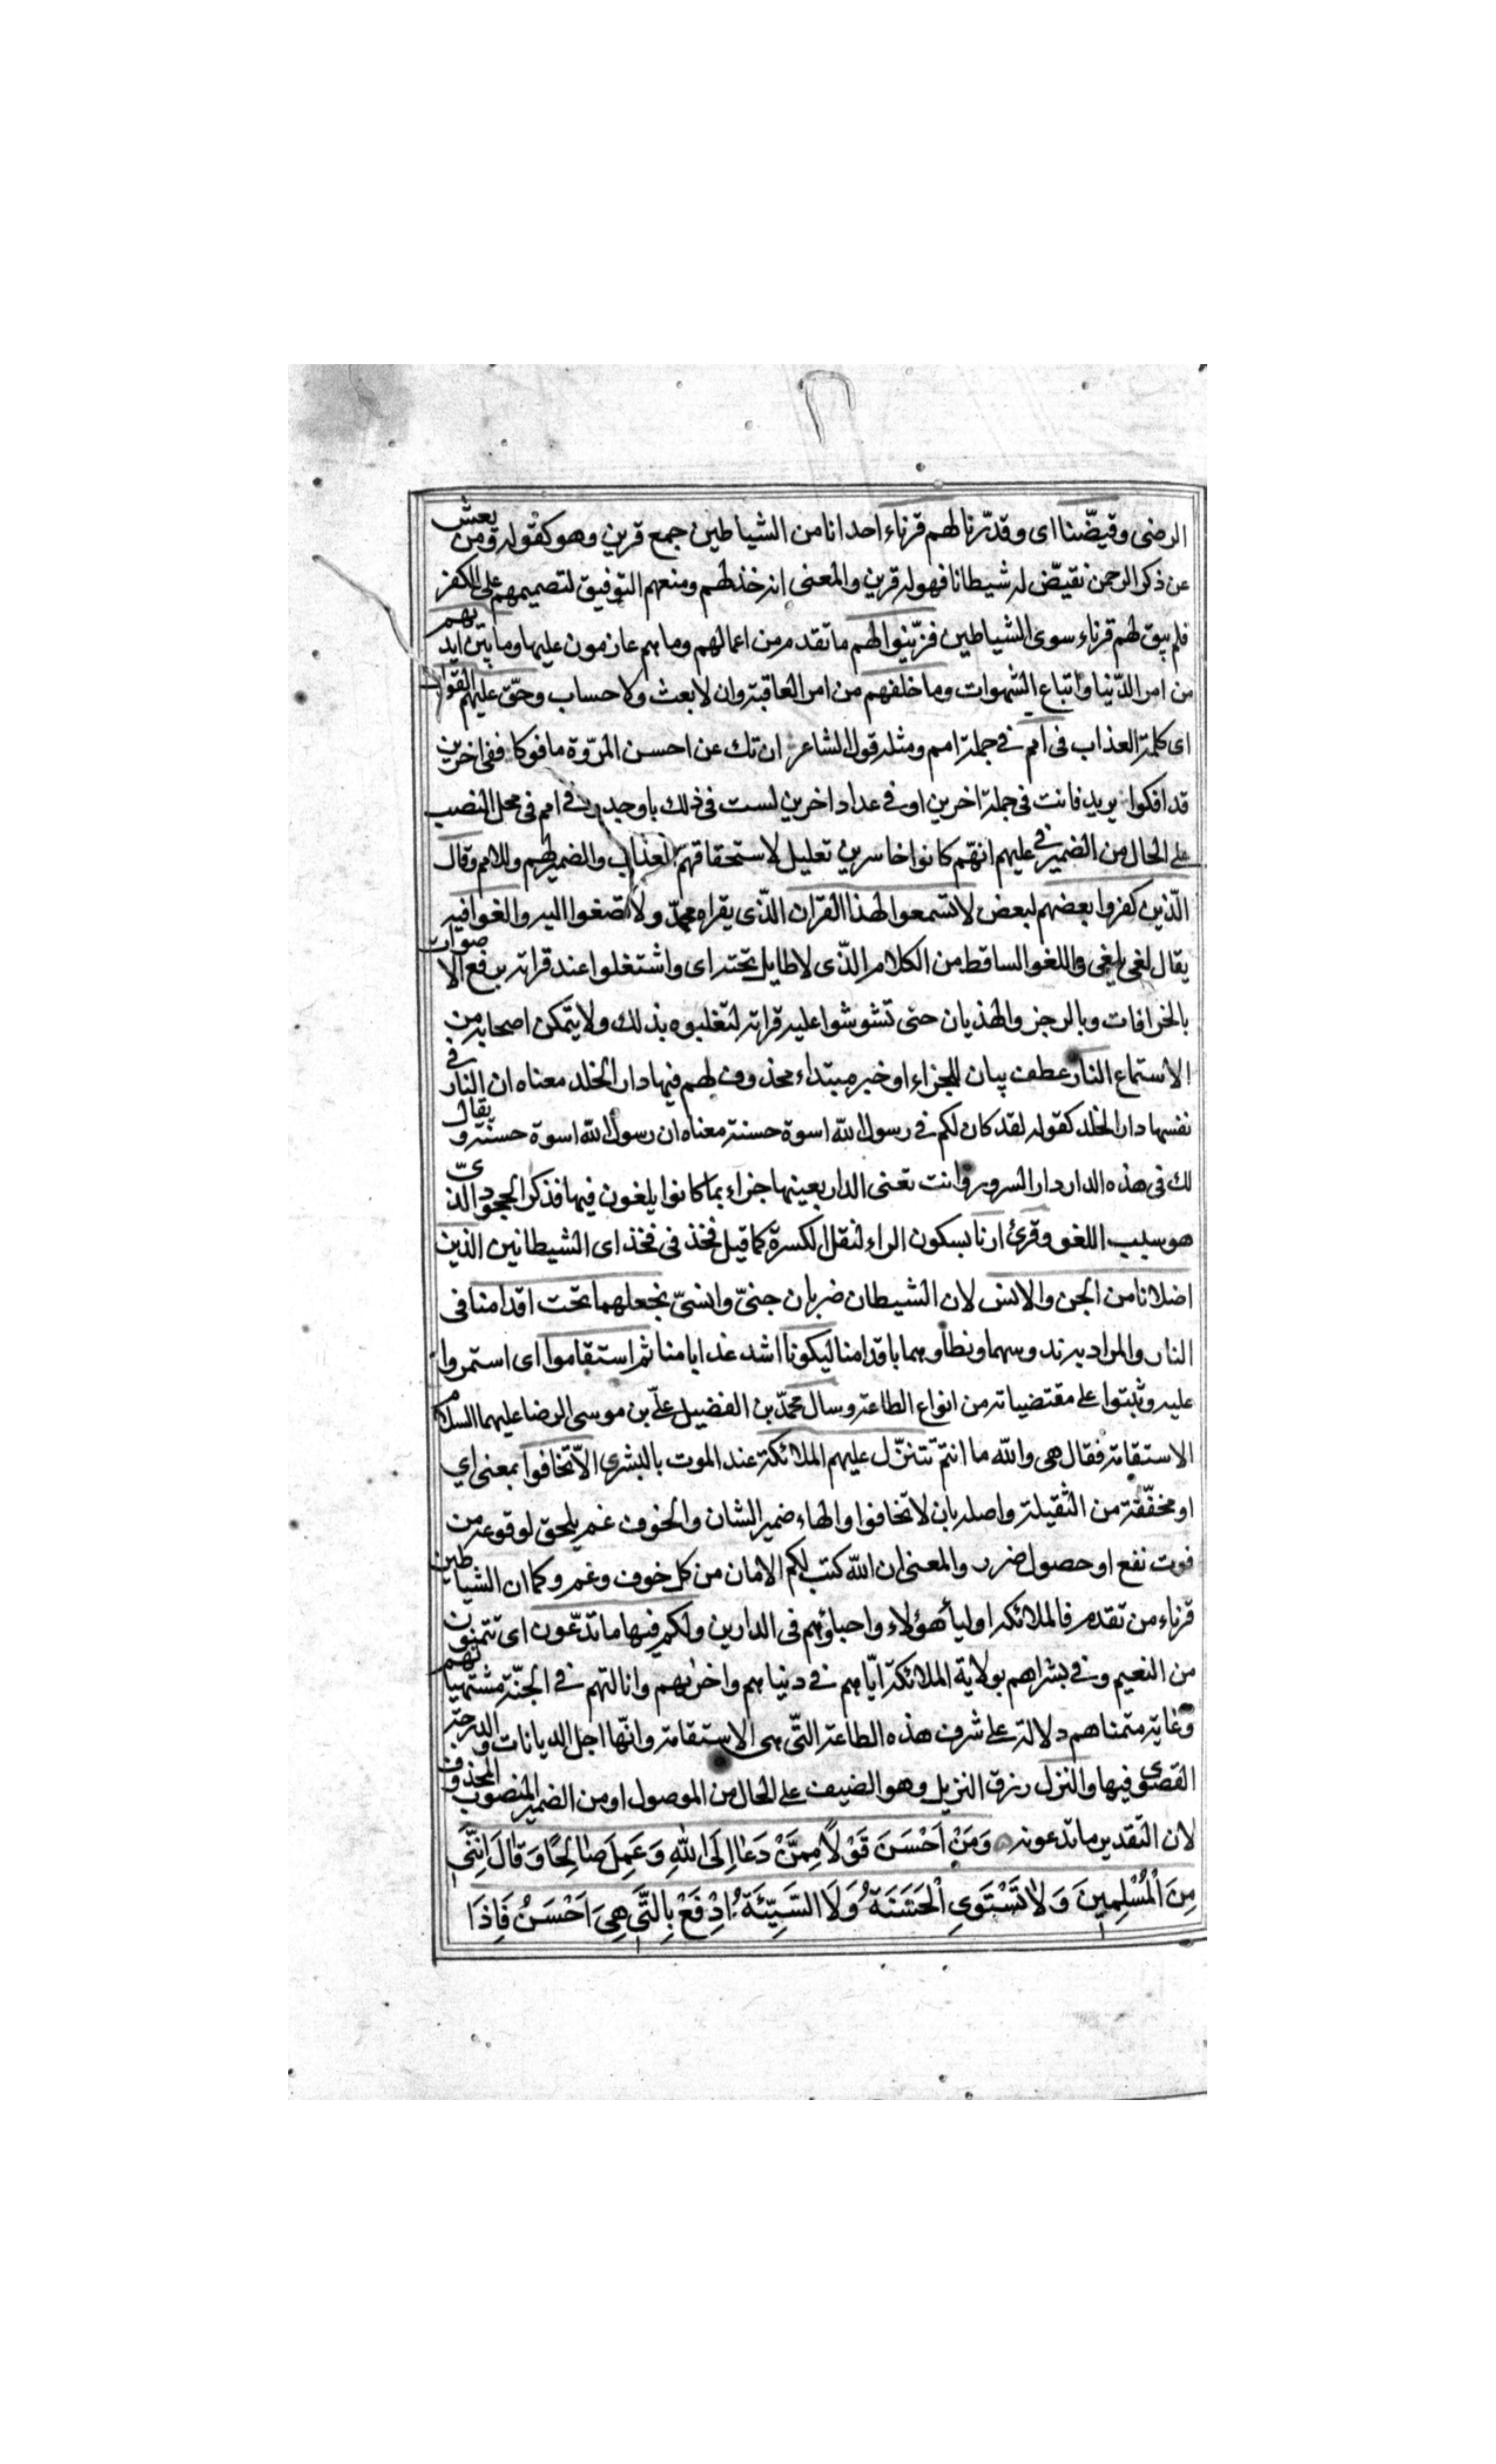 الرضى وقيّضنا اى وقدّرنا لهم قرناء اخدانا من الشياطين جمع قرين وهو كقوله ومن يعش
عن ذكر الرحمن نقيّض له شيطانا فهو له قرين والمعنى انه خذلهم ومنعهم التوفيق لتصميمهم على الكفر
فلم يبق لهم قرناء سوى الشياطين فزيّنوا لهم ما تقدم من اعمالهم وما هم عازمون عليها وما بين ايديهم
من امر الدّنيا واتباع الشهوات وما خلفهم من امر العاقبة وان لا بعث ولا حساب وحقّ عليهم القول
اى كلمة العذاب فى امم فى جملة امم ومثله قول الشاعر ان تك عن احسن المروّة مافوكا ففى اخرين
قد افكوا يريد فانت فى جملة اخرين او فى عداد اخرين لست فى ذلك باوحد وفى امم فى محل النصب
على الحال من الضمير فى عليهم انهم كانوا خاسرين تعليل لاستحقاقهم العذاب والضمير لهم وللامم وقال
الّذين كفروا بعضهم لبعض لا تسمعوا لهذا القران الذّى يقراه محمّد ولا تصغوا اليه والغوا فيه
يقال لغى يلغى واللغو الساقط من الكلام الذّى لا طايل تحته اى واشتغلوا عند قراته برفع الاصوات
بالخرافات وبالرجز والهذيان حتى تشوشوا عليه قراته لتغلبوه بذلك ولا يتمكن اصحابه من
الاستماع النار عطف بيان للجزاء او خبر مبتداء محذوف لهم فيها دار الخلد معناه ان النار فى
نفسها دار الخلد كقوله لقد كان لكم فى رسول الله اسوة حسنة معناه ان رسول الله اسوة حسنة ويقال
لك فى هذه الدار دار السرور وانت تعنى الدار بعينها جزاء بما كانوا يلغون فيها فذكر الجحود الذىّ
هو سبب اللغو وقرئ ارنا بسكون الراء لثقل الكسرة كما قيل فخذ فى فخذ اى الشيطانين الذين
اضلانا من الجن والانس لان الشيطان ضربان جنىّ وانسىّ نجعلهما تحت اقدامنا فى
النار والمراد به ندوسهما ونطاوهما باقدامنا ليكونا اشد عذابا منا ثم استقاموا اى استمروا
عليه وثبتوا على مقتضياته من انواع الطاعة وسال محمّد بن الفضيل علىّ بن موسى الرضا عليهما السلام
الاستقامة فقال هى والله ما انتم تتنزّل عليهم الملائكة عند الموت بالبشرى الاّ تخافوا بمعنى اي
او مخفّفة من الثقيلة واصله بان لا تخافوا والهاء ضمير الشان والخوف غم يلحق لوقوعه من
فوت نفع او حصول ضرر والمعنى ان الله كتب لكم الامان من كل خوف وغم وكما ان الشياطين
قرناء من تقدم فالملائكه اولياء هؤلاء واحباؤهم فى الدارين ولكم فيها ما تدّعون اى تتمنون
من النعيم وفى بشراهم بولاية الملائكة ايّاهم فى دنياهم واخراهم وانالتهم فى الجنّة مشتهياتهم
وغاية متمناهم دلالة على شرف هذه الطاعة التّى هى الاستقامة وانّها اجل الديانات والدرجة
القصوى فيها والنزل رزق النزيل وهو الضيف على الحال من الموصول او من الضمير المنصوب المحذوف
لان التقدير ما تدعونه وَمَنْ اَحْسَنَ قَوْلًا مِمَّنْ دَعَا اِلَى اللهِ وَعَمِلَ صَالِحًا وَقَالَ اِنَّنِي
مِنَ الْمُسْلِمِينَ وَلَا تَسْتَوِي الْحَسَنَةُ وَلَا السَّيِّئَةُ اِدْفَعْ بِالَّتِي هِيَ اَحْسَنُ فَاِذَا